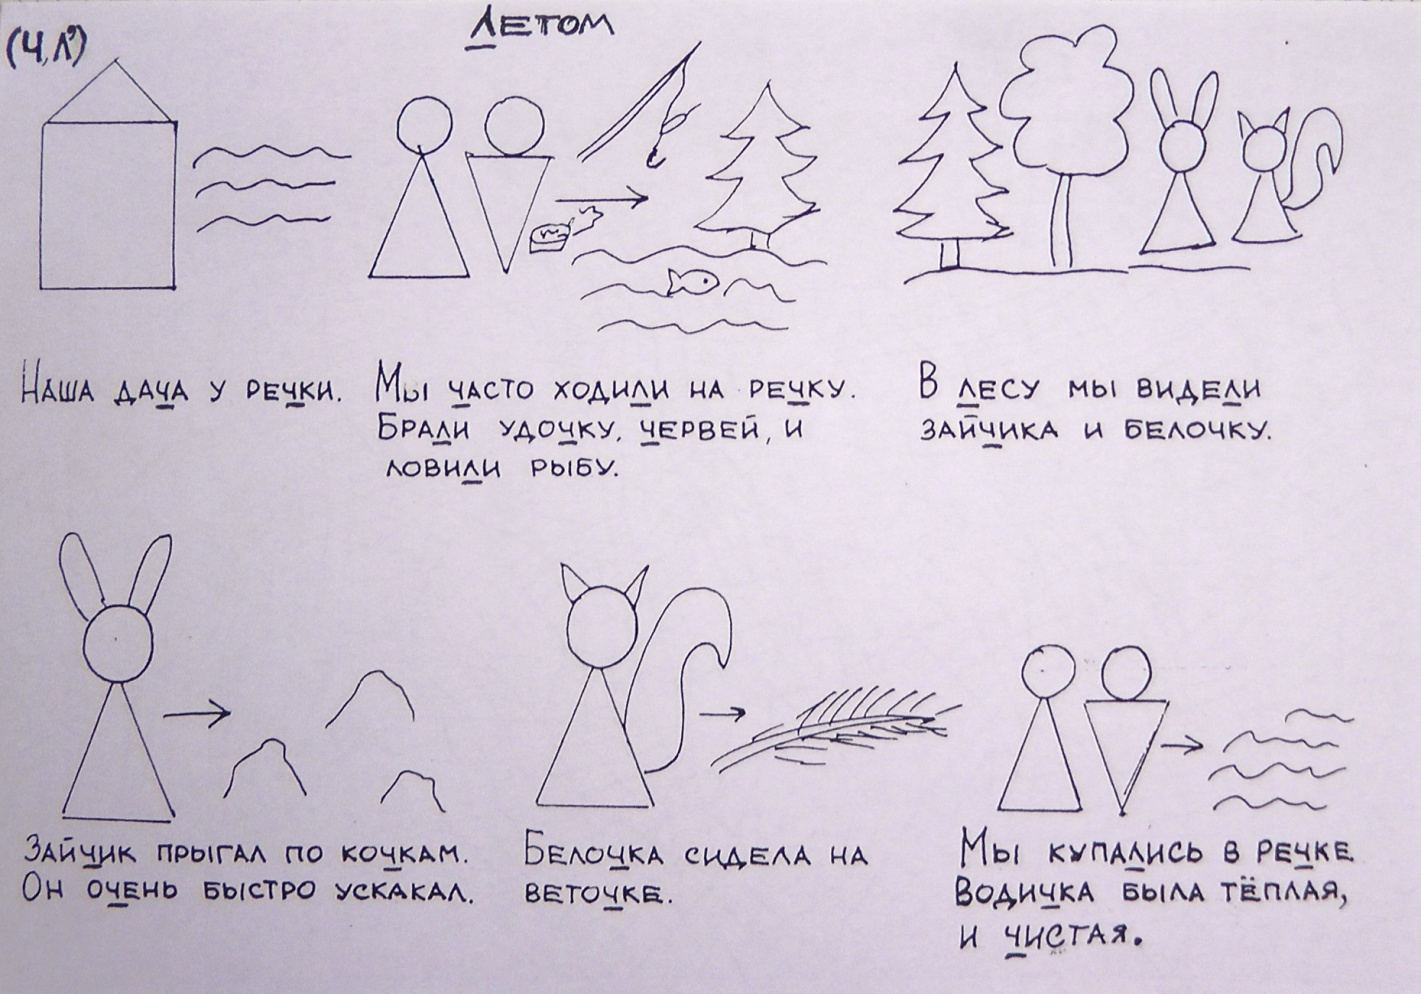 (Ч, Л')
ЛЕТОМ
НАША ДАЧА У РЕЧКИ.
МЫ ЧАСТО ХОДИЛИ НА РЕЧКУ.
БРАЛИ УДОЧКУ, ЧЕРВЕЙ, И
ЛОВИЛИ РЫБУ.
В ЛЕСУ МЫ ВИДЕЛИ
ЗАЙЧИКА И БЕЛОЧКУ.
ЗАЙЧИК ПРЫГАЛ ПО КОЧКАМ.
ОН ОЧЕНЬ БЫСТРО УСКАКАЛ.
БЕЛОЧКА СИДЕЛА НА
ВЕТОЧКЕ.
МЫ КУПАЛИСЬ В РЕЧКЕ.
ВОДИЧКА БЫЛА ТЁПЛАЯ,
И ЧИСТАЯ.